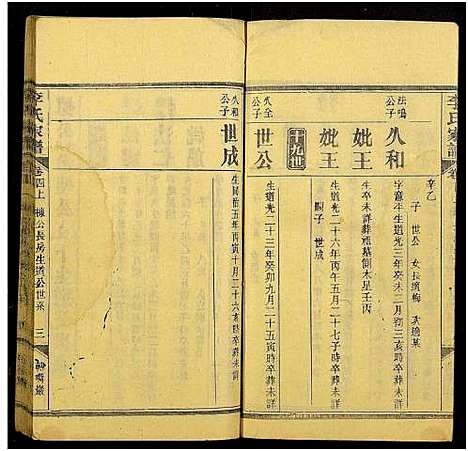 李氏家譜
卷
子 世公 女長適梅 次適某
辛乙
法鳴公子
久和
字意平生道光未二月初三亥時卒葬未詳
妣王
生卒未詳葬祖墓側未星壬丙
妣王
生道光二十六年丙午五月二十七子時卒葬未詳
嗣子 世成
十九世
久全公子
世公
生道光二十三年癸卯九月二十五寅時卒葬未詳
久和公子
世成
生同治五年丙寅十月二十六亥時卒葬未詳
李氏家譜
卷四上
棟公長房生道公世系
三